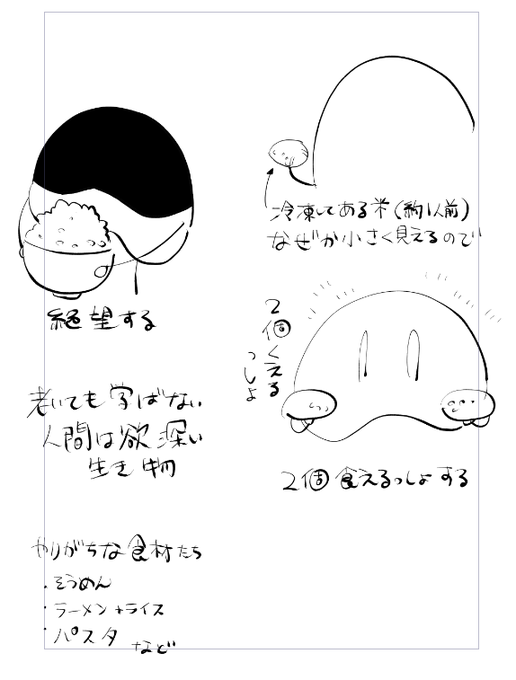 冷凍してある米(約1人前)
なぜか小さく見えるので
2個くえる
っしょ
2個食えるっしょする
絶望する
老いても学ばない
人間は欲深い
生き物
やりがちな食材たち
・そうめん
・ラーメン+ライス
・パスタ
など